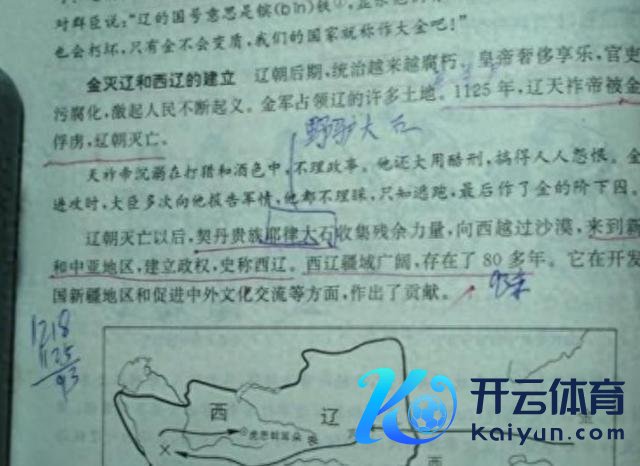 对群臣说:“辽的国号意思是镔(bīn)铁①,
也会朽坏,只有金不会变质,我们的国家就称作大金吧!”
金灭辽和西辽的建立 辽朝后期,统治越来越腐朽。皇帝奢侈享乐,官吏
污腐化,激起人民不断起义。金军占领辽的许多土地。1125年,辽天祚帝被金
俘虏,辽朝灭亡。
大石
天祚帝沉溺在打猎和酒色中,不理政事。他还大用酷刑,搞得人人怨恨。金
进攻时,大臣多次向他报告军情,他都不理睬,只知逃跑,最后作了金的阶下囚。
辽朝灭亡以后,契丹贵族耶律大石收集残余力量,向西越过沙漠,来到新
和中亚地区,建立政权,史称西辽。西辽疆域广阔,存在了80多年。它在开发
国新疆地区和促进中外文化交流等方面,作出了贡献。
93年
1218
1125
93
西 辽
虎思斡耳朵
西
开云体育
kaiyun.com